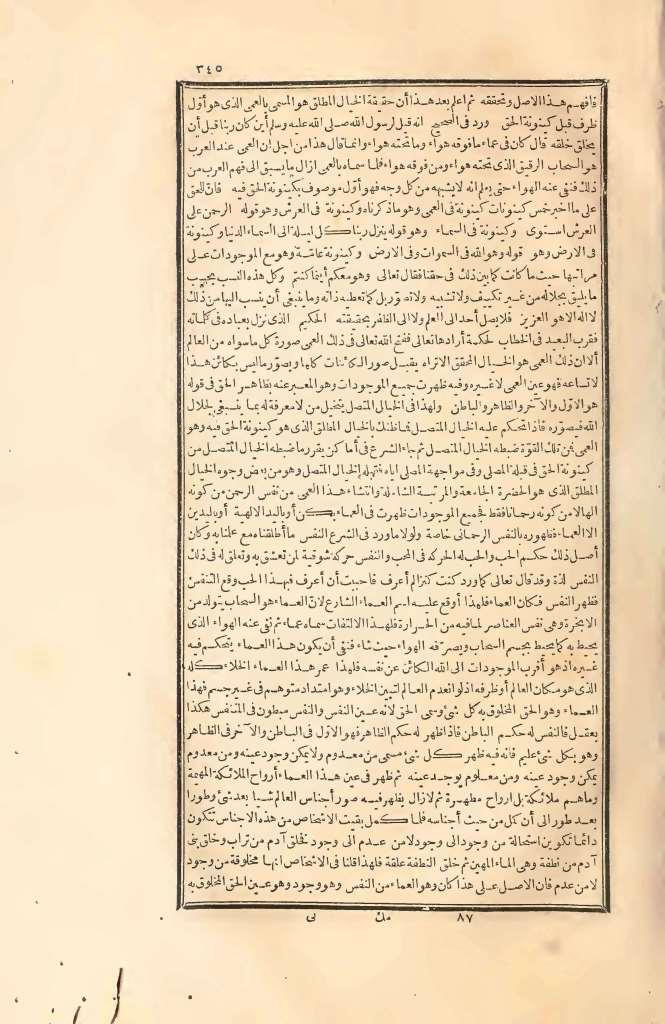 ٣٤٥
فافهم هذا الاصل وتحققه ثم اعلم بعد هذا أن حقيقة الخيال المطلق هو المسمى بالعمى الذى هو أول
ظرف قبل كينونة الحق ورد فى الصحيح انه قيل لرسول الله صلى الله عليه وسلم أين كان ربنا قبل أن
يخلق خلقه قال كان فى عماء مافوقه هواء وما تحته هواء وانما قال هذا من اجل ان العمى عند العرب
هو السحاب الرقيق الذى تحته هواء ومن فوقه هواء فلما سماه بالعمى ازال ما يسبق الى فهم العرب من
ذلك فنفى عنه الهواء حتى يعلم انه لا يشبهه من كل وجه فهو أول موصوف بكينونة الحق فيه فان للحق
على ما اخبر خمس كينونات كينونة فى العمى وهو ما ذكرناه وكينونة فى العرش وهو قوله الرحمن على
العرش استوى وكينونة فى السماء وهو قوله ينزل ربنا كل ليلة الى السماء الدنيا وكينونة
فى الارض وهو قوله وهو الله فى السموات وفى الارض وكينونة عامة وهو مع الموجودات على
مراتبها حيث ما كانت كما بين ذلك فى حقنا فقال تعالى وهو معكم أينما كنتم وكل هذه النسب بحسب
ما يليق بجلاله من غير تكييف ولا تشبيه ولا تصور بل كما تعطيه ذاته وما ينبغى أن ينسب اليها من ذلك
لا اله الا هو العزيز فلا يصل أحد الى العلم ولا الى الظفر بحقيقته الحكيم الذى نزل بعباده فى كلماته
فقرب البعيد فى الخطاب لحكمة أرادها تعالى ففتح الله تعالى فى ذلك العمى صورة كل ما سواه من العالم
ألا ان ذلك العمى هو الخيال المحقق الا تراه يقبل صور الكائنات كلها ويصور ما ليس بكائن هذا
لاتساعه فهو عين العمى لا غيره وفيه ظهرت جميع الموجودات وهو المعبر عنه بظاهر الحق فى قوله
هو الاول والآخر والظاهر والباطن ولهذا فى الخيال المتصل يتخيل من لا معرفة له بما ينبغى لجلال
الله فيصوره فاذا تحكم عليه الخيال المتصل فما ظنك بالخيال المطلق الذى هو كينونة الحق فيه وهو
العمى فمن تلك القوة ضبطه الخيال المتصل ثم جاء الشرع فى أماكن يقرر ما ضبطه الخيال المتصل من
كينونة الحق فى قبلة المصلى وفى مواجهة المصلى اياه فقبله الخيال المتصل وهو من بعض وجوه الخيال
المطلق الذى هو الحضرة الجامعة والمرتبة الشاملة وانتشاء هذا العمى من نفس الرحمن من كونه
الها لا من كونه رحمانا فقط فجميع الموجودات ظهرت فى العماء بكن أو باليد الالهية أو باليدين
الا العماء فظهوره بالنفس الرحمانى خاصة ولولا ما ورد فى الشرع النفس ما أطلقناه مع علمنا به وكان
أصل ذلك حكم الحب والحب له الحركة فى المحب والنفس حركة شوقية لمن تعشق به وتعلق له فى ذلك
النفس لذة وقد قال تعالى كما ورد كنت كنزا لم أعرف فاحببت أن أعرف فبهذا الحب وقع التنفس
فظهر النفس فكان العماء فلهذا أوقع عليه اسم العماء الشارع لان العماء هو السحاب يتولد من
الابخرة وهى نفس العناصر لما فيه من الحرارة فلهذا الالتفات سماه عماء ثم نفى عنه الهواء الذى
يحيط به كما يحيط بجسم السحاب ويصرفه الهواء حيث شاء فنفى أن يكون هذا العماء يتحكم فيه
غيره اذ هو أقرب الموجودات الى الله الكائن عن نفسه فلهذا عمر هذا العماء الخلاء كله
الذى هو مكان العالم أو ظرفه اذ لو انعدم العالم لتبين الخلاء وهو امتداد متوهم فى غير جسم فهذا
العماء وهو الحق المخلوق به كل شئ وسمى الحق لانه عين النفس والنفس مبطون فى المتنفس هكذا
يعقل فالنفس له حكم الباطن فاذا ظهر له حكم الظاهر فهو الاول فى الباطن والآخر فى الظاهر
وهو بكل شئ عليم فانه فيه ظهر كل شئ مسمى من معدوم ولا يمكن وجود عينه ومن معدوم
يمكن وجود عينه ومن معلوم يوجد عينه ثم ظهر فى عين هذا العماء أرواح الملائكة المهيمة
وما هم ملائكة بل ارواح مطهرة ثم لا زال يظهر فيه صور أجناس العالم شيأ بعد شئ وطورا
بعد طور الى أن كمل من حيث أجناسه فلما كمل بقيت الاشخاص من هذه الاجناس تتكون
دائما تكوين استحالة من وجود الى وجود لا من عدم الى وجود فخلق آدم من تراب وخلق بنى
آدم من نطفة وهى الماء المهين ثم خلق النطفة علقة فلهذا قلنا فى الاشخاص انها مخلوقة من وجود
لا من عدم فان الاصل على هذا كان وهو العماء من النفس وهو وجود وهو عين الحق المخلوق به
٨٧ مك نى